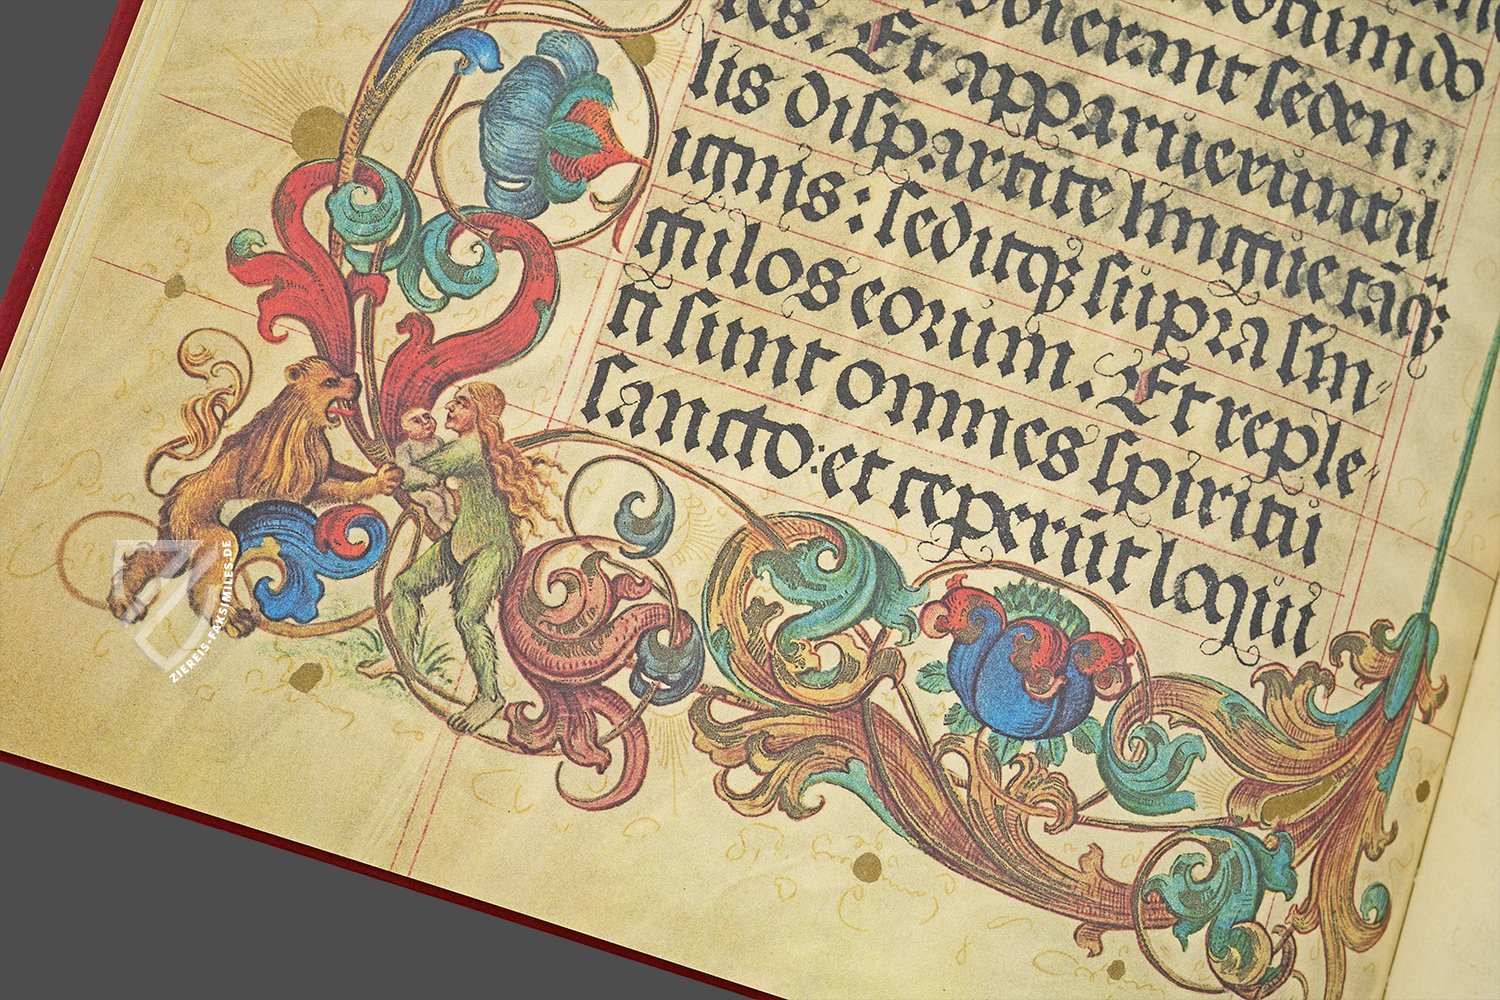 bierant seden:
tes. Et apparuerunt il
lis dispartite lingue tāq;
ignis: seditq; supra sin=
gulos eorum. Et reple=
ti sunt omnes spiritu
sancto: et ceperūt loqui
ZIEREIS-FAKSIMILES.DE